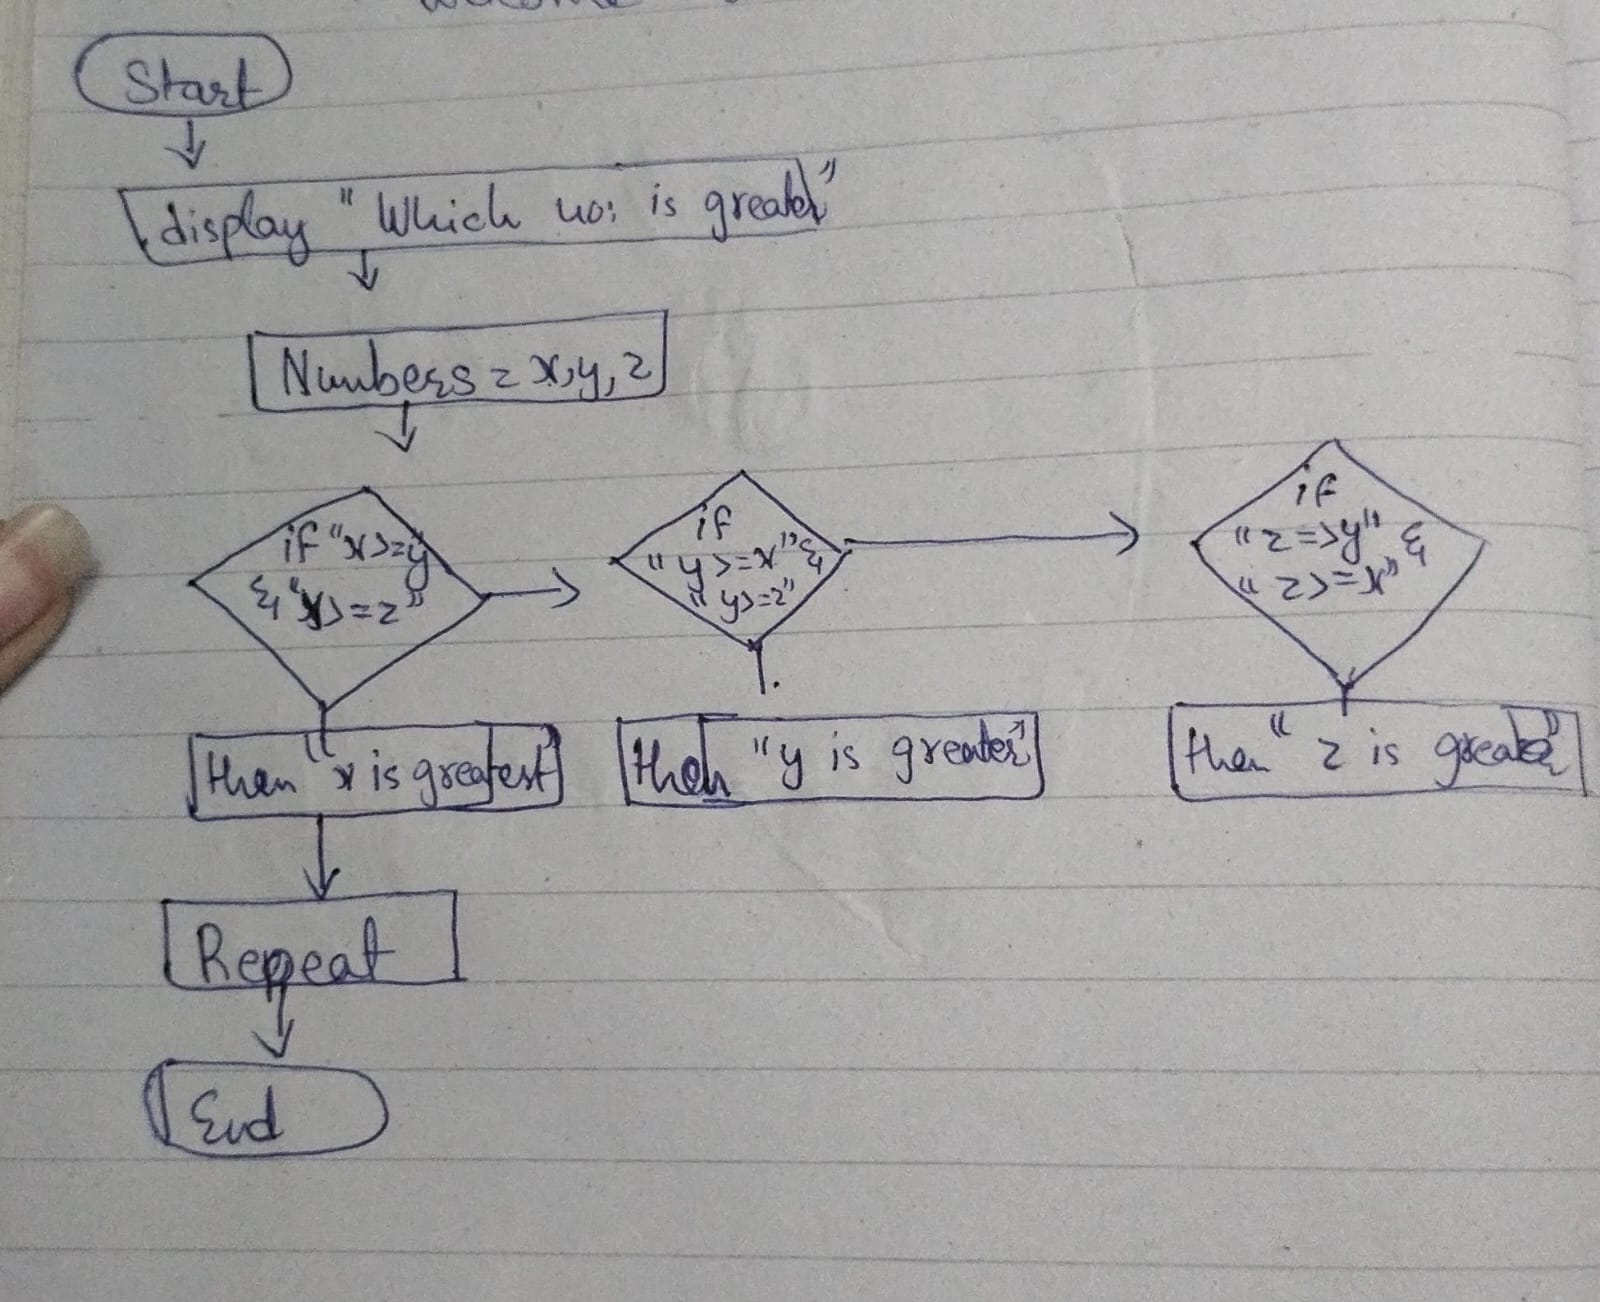 Start
display "Which no: is greater"
Numbers = x,y,z
if "x>=y
& "x>=z"
if
"y>=x" &
"y>=z"
if
"z=>y" &
"z>=x"
then "x is greatest"
then "y is greater"
then "z is greater"
Repeat
End